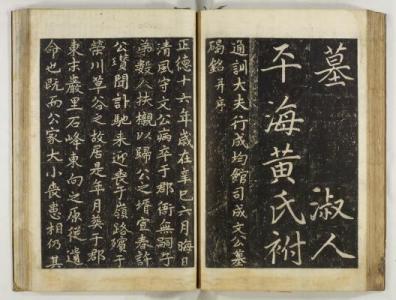 墓　淑人
平海黃氏祔
通訓大夫行成均館司成文公墓
碣銘 并序
正德十六年歲在辛巳六月晦日
清風守文公病卒于郡衙無嗣子
弟數人扶櫬以歸公之壻宜春許
公瓚聞訃馳来迎喪于嶺路殯于
榮川草谷之故居是年月葬于郡
東京巖里石峰東向之原從遺
命也既而公家大小喪患相仍其